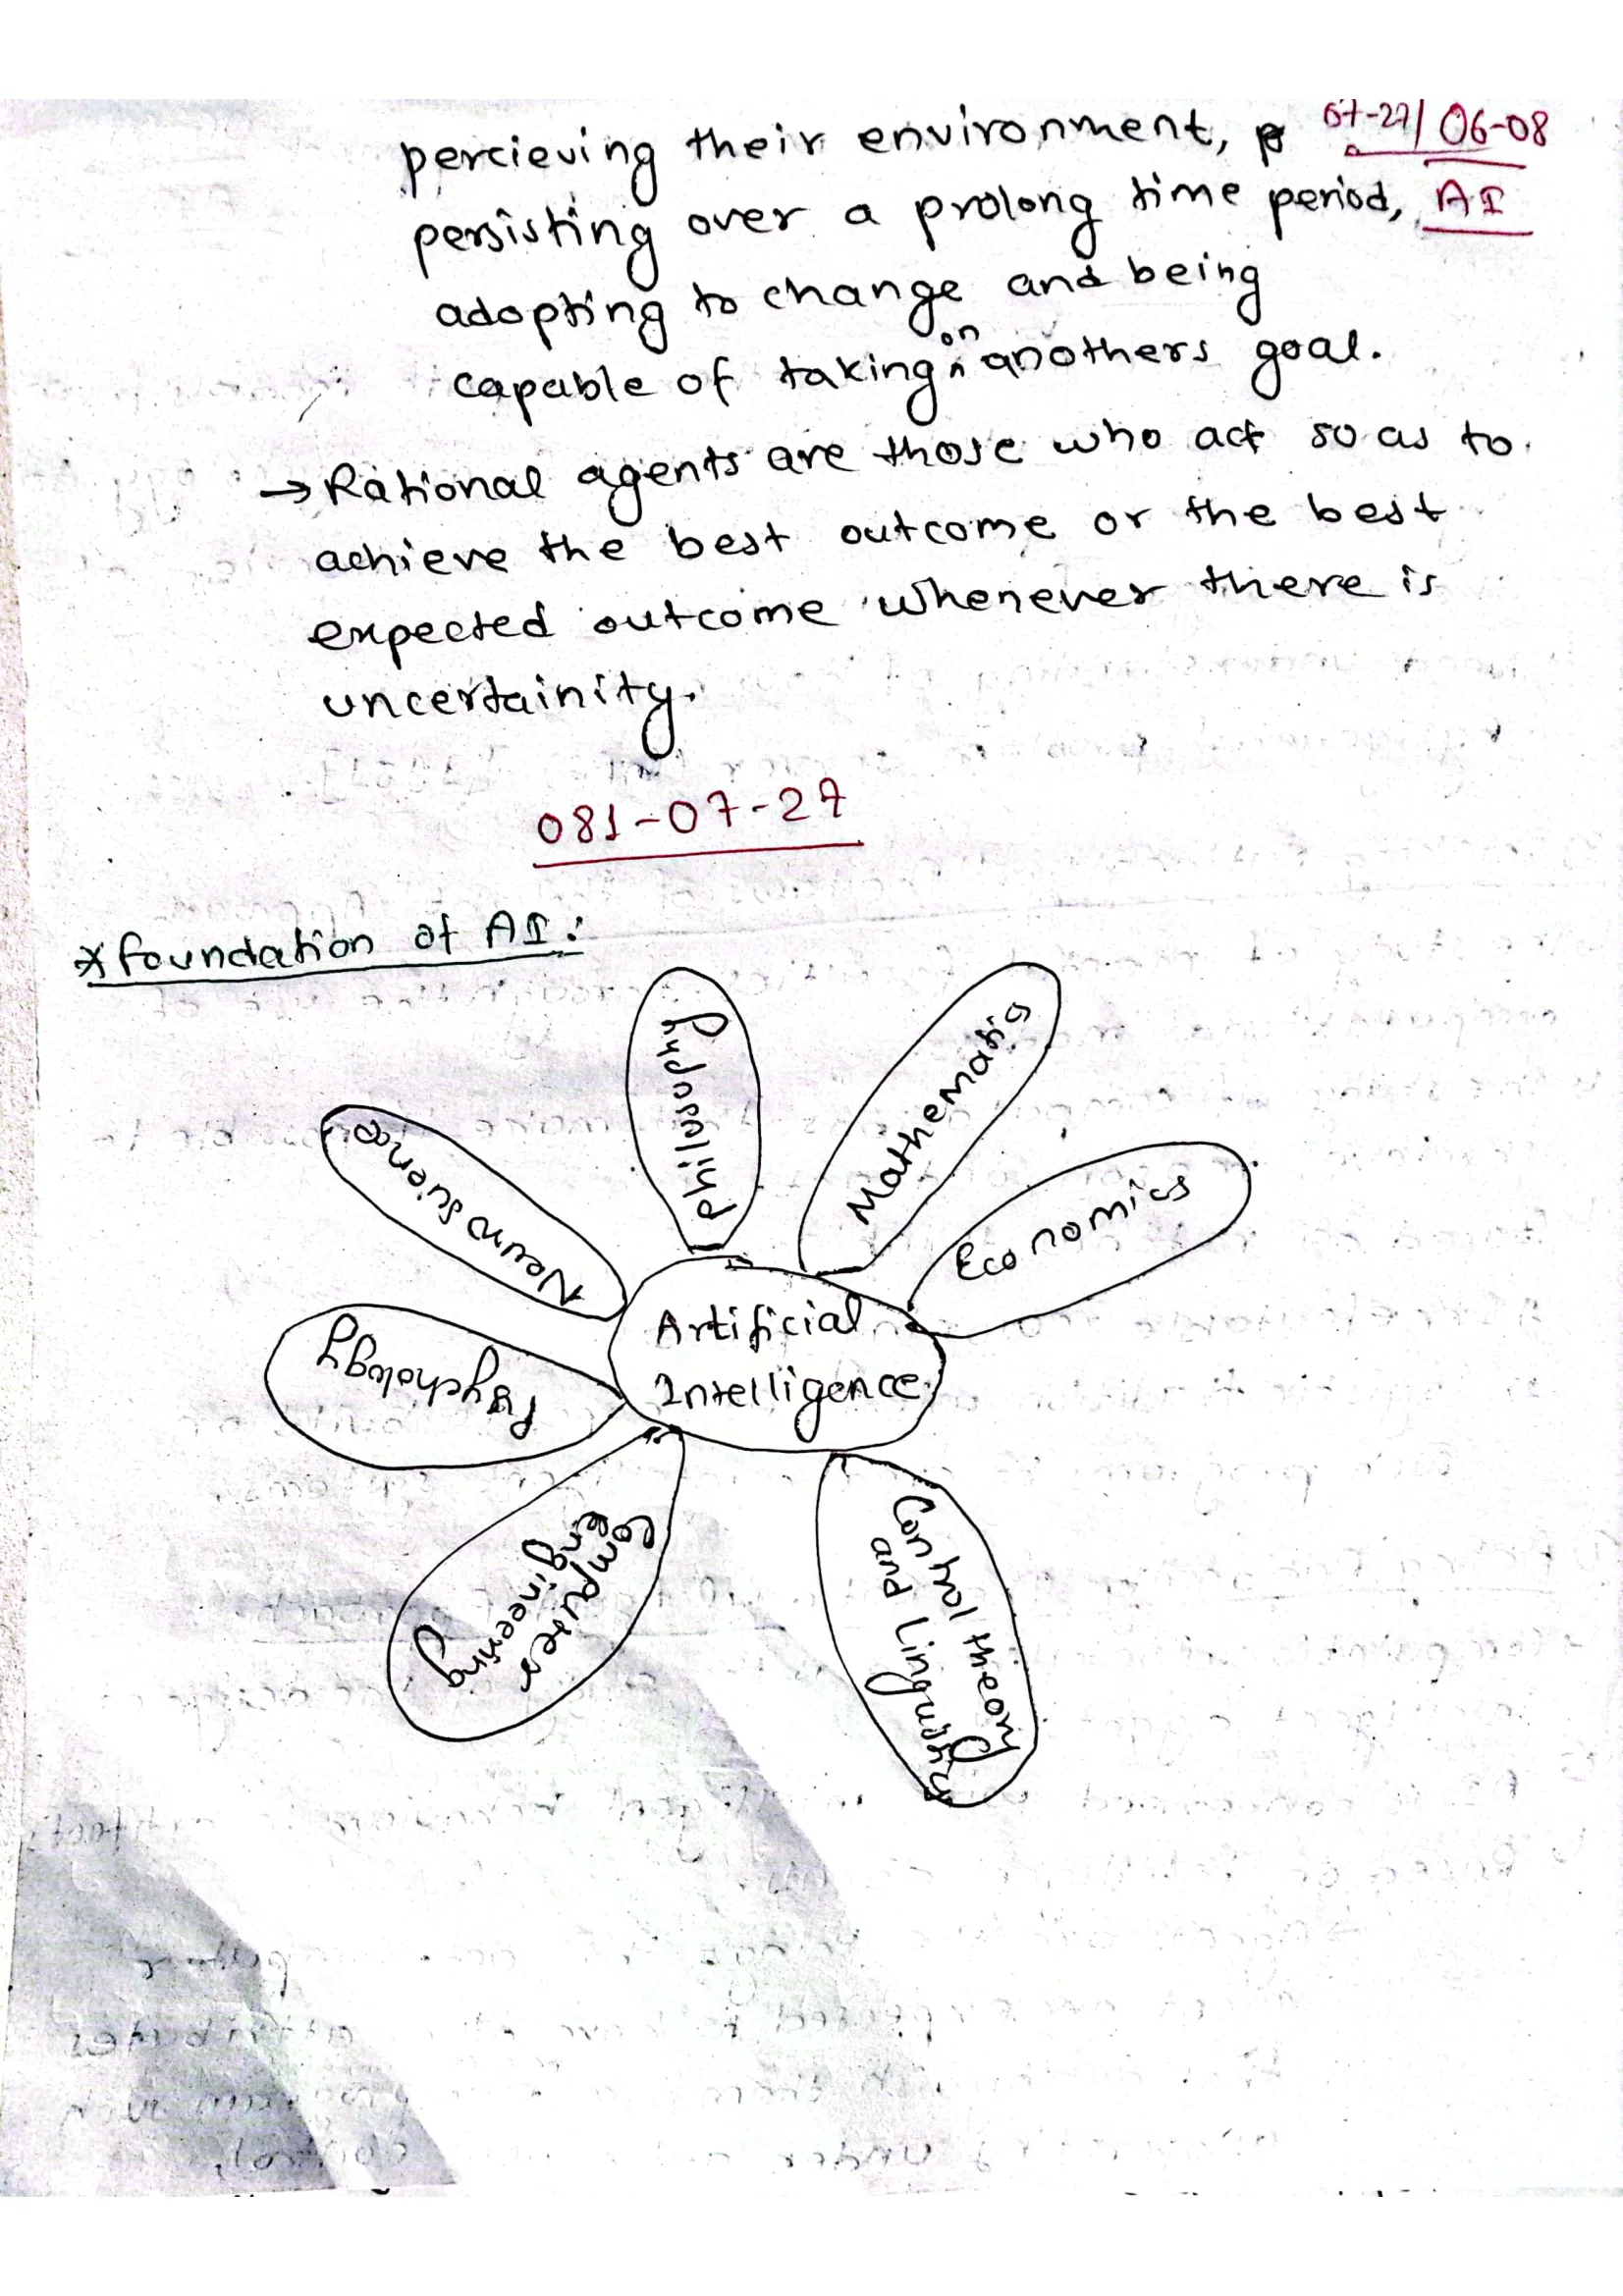 percieving their environment,
07-27/06-08
persisting over a prolong time period,
AI
adopting to change and being
capable of taking on anothers goal.
→ Rational agents are those who act so as to
achieve the best outcome or the best
expected outcome whenever there is
uncertainity.
081-07-27
* foundation of AI:
Philosophy
Mathematics
Economics
Neuro science
Artificial
Intelligence
Psychology
Computer
Engineering
Control theory
and Linguistics